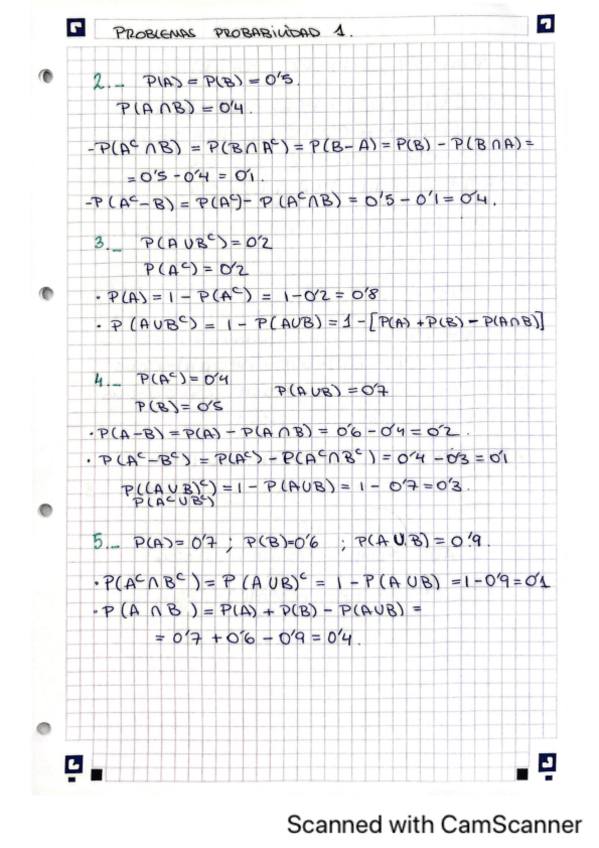 PROBLEMAS PROBABILIDAD 1.
2.- P(A) = P(B) = 0'5.
P(A ∩ B) = 0'4.
-P(Aᶜ ∩ B) = P(B ∩ Aᶜ) = P(B - A) = P(B) - P(B ∩ A) =
= 0'5 - 0'4 = 0'1.
-P(Aᶜ - B) = P(Aᶜ) - P(Aᶜ ∩ B) = 0'5 - 0'1 = 0'4.
3.- P(A ∪ Bᶜ) = 0'2
P(Aᶜ) = 0'2
· P(A) = 1 - P(Aᶜ) = 1 - 0'2 = 0'8
· P(A ∪ Bᶜ) = 1 - P(A ∪ B) = 1 - [P(A) + P(B) - P(A ∩ B)]
4.- P(Aᶜ) = 0'4 P(A ∪ B) = 0'7
P(B) = 0'5
· P(A - B) = P(A) - P(A ∩ B) = 0'6 - 0'4 = 0'2.
· P(Aᶜ - Bᶜ) = P(Aᶜ) - P(Aᶜ ∩ Bᶜ) = 0'4 - 0'3 = 0'1
P((A ∪ B)ᶜ) = 1 - P(A ∪ B) = 1 - 0'7 = 0'3.
P(Aᶜ ∪ Bᶜ)
5.- P(A) = 0'7 ; P(B) = 0'6 ; P(A ∪ B) = 0'9.
· P(Aᶜ ∩ Bᶜ) = P(A ∪ B)ᶜ = 1 - P(A ∪ B) = 1 - 0'9 = 0'1
· P(A ∩ B) = P(A) + P(B) - P(A ∪ B) =
= 0'7 + 0'6 - 0'9 = 0'4.
Scanned with CamScanner